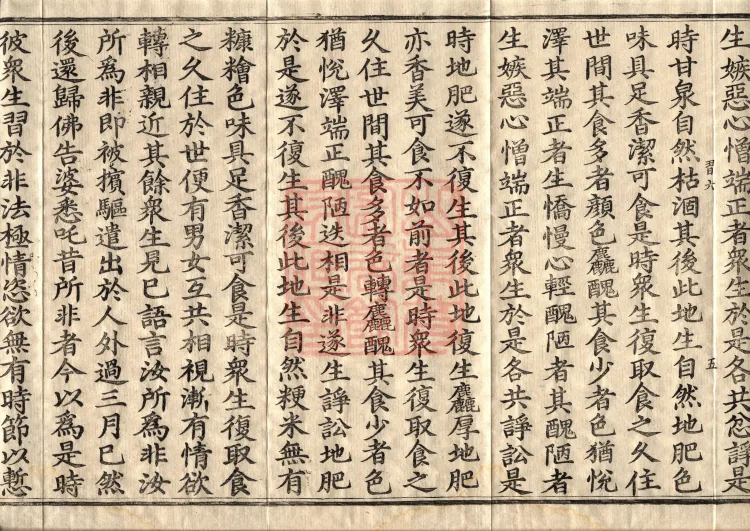 生嫉惡心憎端正者衆生於是各共忿諍是
習六 五
時甘泉自然枯涸其後此地生自然地肥色
味具足香潔可食是時衆生復取食之久住
世間其食多者顔色麤醜其食少者色猶悅
澤其端正者生憍慢心輕醜陋者其醜陋者
生嫉惡心憎端正者衆生於是各共諍訟是
時地肥遂不復生其後此地復生麤厚地肥
亦香美可食不如前者是時衆生復取食之
久住世間其食多者色轉麤醜其食少者色
猶悅澤端正醜陋迭相是非遂生諍訟地肥
於是遂不復生其後此地生自然粳米無有
糠糩色味具足香潔可食是時衆生復取食
之久住於世便有男女互共相視漸有情欲
轉相親近其餘衆生見已語言汝所爲非汝
所爲非即被擯驅遣出於人外過三月已然
後還歸佛告婆悉吒昔所非者今以爲是時
彼衆生習於非法極情恣欲無有時節以慙